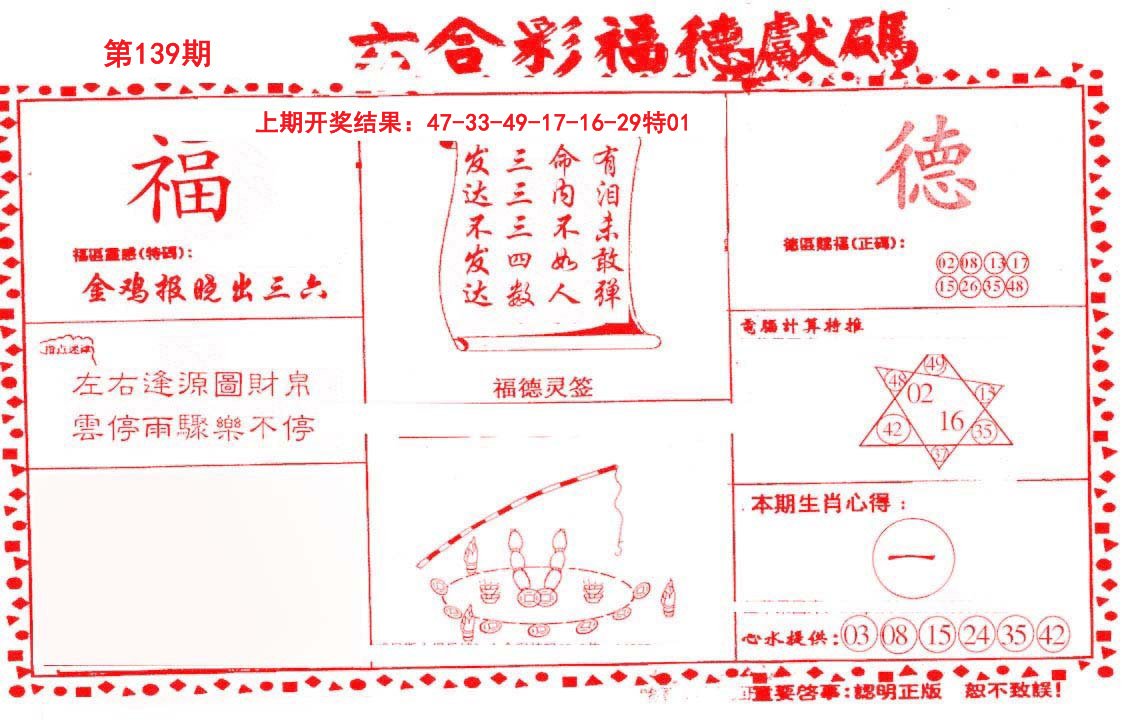 第139期
六合彩福德獻碼
上期开奖结果：47-33-49-17-16-29特01
福
福區靈感(特碼)：
金鸡报晓出三六
左右逢源圖財帛
雲停雨驟樂不停
有泪未敢弹
命内不如人
三三三四数
发达不发达
福德灵签
德
德區賜福(正碼)：
02 08 13 17
15 26 35 48
電腦計算特推
49
48 02 15
42 16 35
37
本期生肖心得：
一
心水提供：03 08 15 24 35 42
重要啓事：認明正版 恕不致誤！